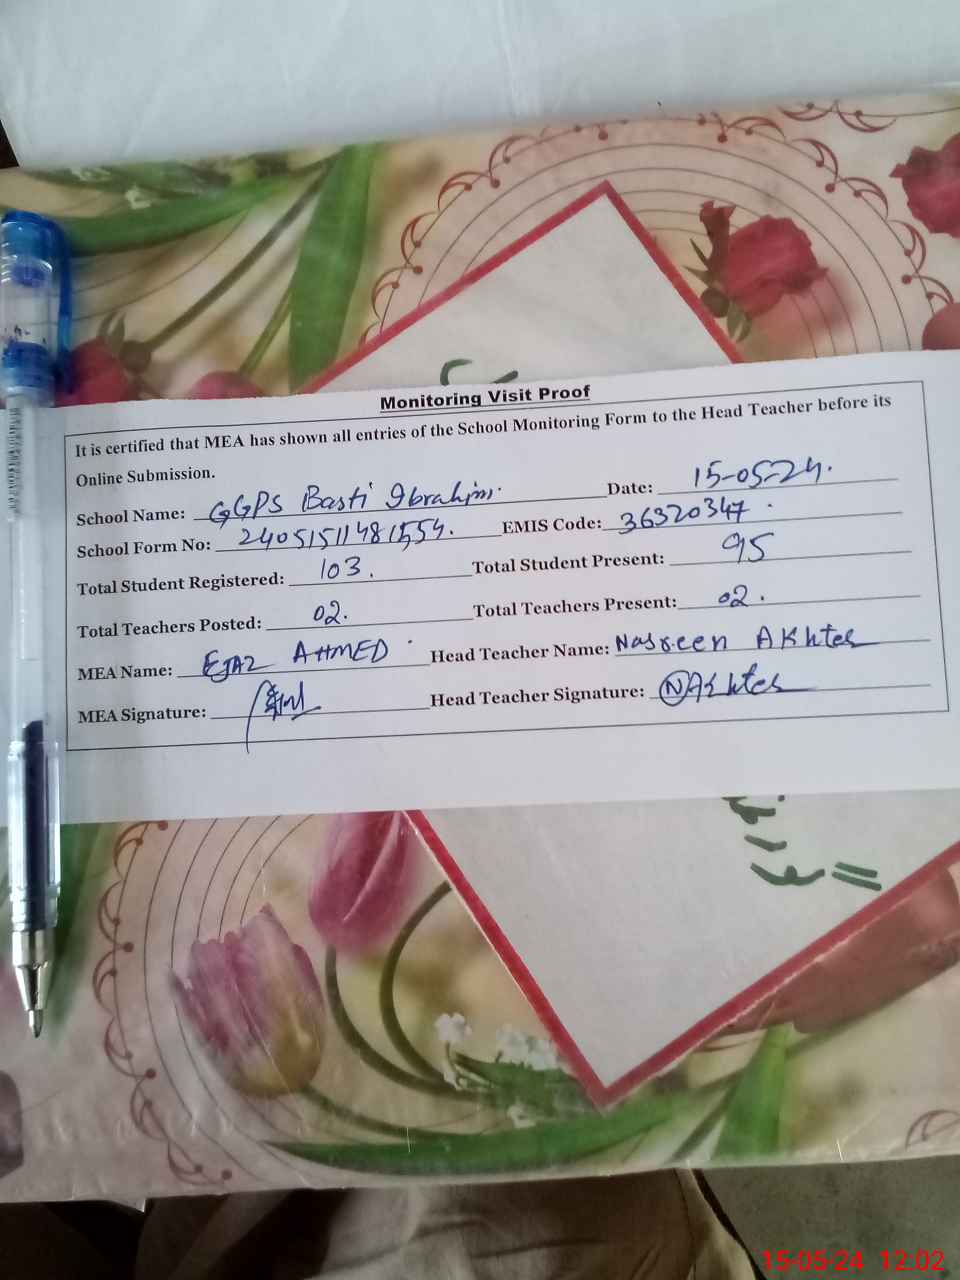 Monitoring Visit Proof
It is certified that MEA has shown all entries of the School Monitoring Form to the Head Teacher before its
Online Submission.
School Name: GGPS Basti Ibrahim. Date: 15-05-24.
School Form No: EMIS Code: 36320347.
Total Student Registered: 103. Total Student Present: 95
Total Teachers Posted: 02. Total Teachers Present: 02.
MEA Name: EJAZ AHMED Head Teacher Name: Nasreen Akhter
MEA Signature: Head Teacher Signature: NAkhter
15-05-24 12:02